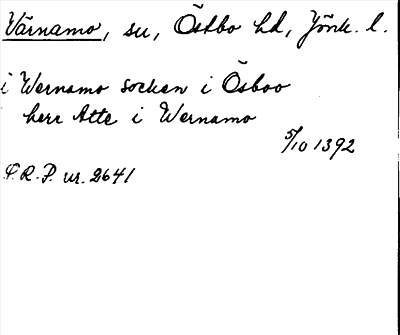 Värnamo, sn, Östbo hd, Jönk. l.
i Wernamo socken i Ösboo
herr Atte i Wernamo
5/10 1392
P.R.P. nr. 2641